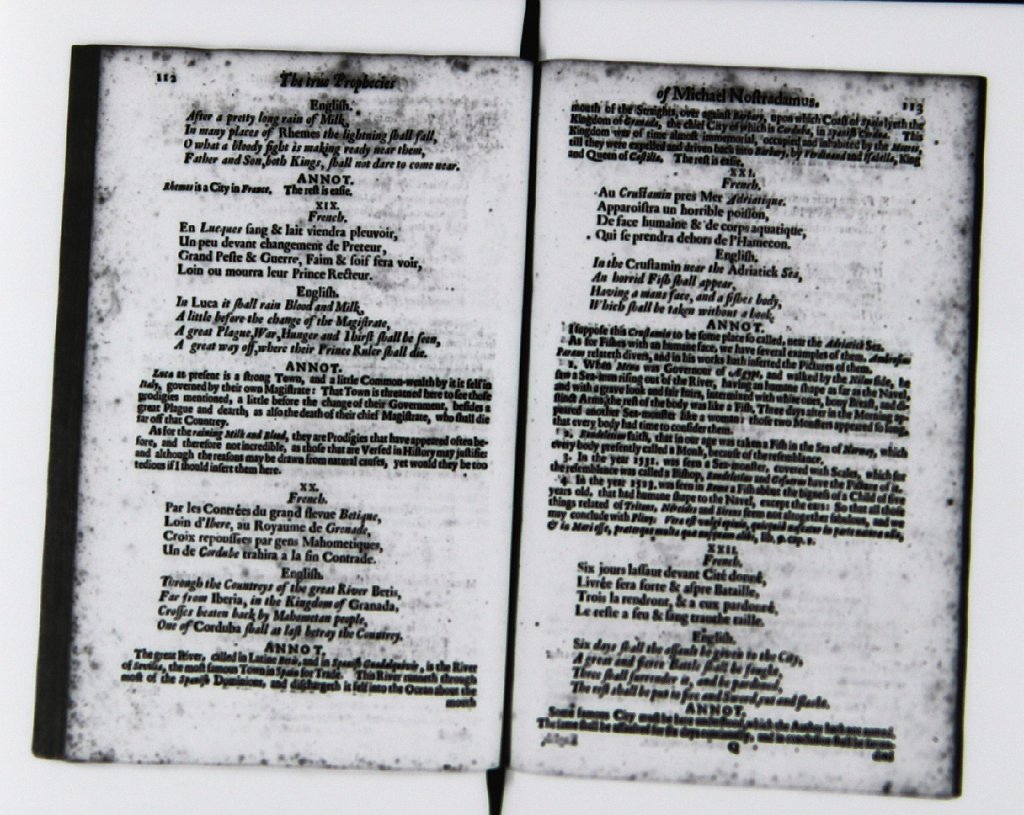 112
The true Prophecies
English.
After a pretty long rain of Milk,
In many places of Rhemes the lightning ſhall fall,
O what a bloody fight is making ready near them,
Father and Son, both Kings, ſhall not dare to come near.
ANNOT.
Rhemes is a City in France. The reſt is eaſie.
XIX.
French.
En Lucques ſang & lait viendra pleuvoir,
Un peu devant changement de Preteur,
Grand Peſte & Guerre, Faim & ſoif fera voir,
Loin ou mourra leur Prince Recteur.
English.
In Luca it ſhall rain Blood and Milk,
A little before the change of the Magiſtrate,
A great Plague, War, Hunger and Thirſt ſhall be ſeen,
A great way off, where their Prince Ruler ſhall die.
ANNOT.
Luca at preſent is a ſtrong Town, and a little Common-wealth by it ſelf in
Italy, governed by their own Magiſtrate: That Town is threatned here to ſee thoſe
prodigies mentioned, a little before the change of their Government, beſides a
great Plague and dearth, as alſo the death of their chief Magiſtrate, who ſhall die
far off that Countrey.
As for the raining Milk and Blood, they are Prodigies that have appeared often be-
fore, and therefore not incredible, as thoſe that are Verſed in Hiſtory may juſtifie:
and although the reaſons may be drawn from natural cauſes, yet would they be too
tedious if I ſhould inſert them here.
XX.
French.
Par les Contrées du grand fleuve Betique,
Loin d'Ibere, au Royaume de Grenade,
Croix repouſſées par gens Mahometiques,
Un de Cordube trahira a la fin Contrade.
English.
Through the Countreys of the great River Betis,
Far from Iberia, in the Kingdom of Granada,
Croſſes beaten back by Mahometan people,
One of Corduba ſhall at laſt betray the Countrey.
ANNOT.
The great River, called in Latine Betis, and in Spaniſh Guadalquivir, is the River
of Sevilla, the moſt famous Town in Spain for Trade. This River runneth through
moſt of the Spaniſh Dominions, and diſchargeth it ſelf into the Ocean about the
mouth
of Michael Noſtradamus.
113
mouth of the Streights, over againſt Barbary, upon which Coaſt of Spain lyeth the
Kingdom of Granada, the chief City of which is Corduba, in Spaniſh Cordoua. The
Kingdom was of time almoſt immemorial, occupied and inhabited by the Mores,
till they were expelled and driven back into Barbary, by Ferdinand and Iſabella, King
and Queen of Caſtilia. The reſt is eaſie.
XXI.
French.
Au Cruſtamin pres Mer Adriatique.
Apparoiſtra un horrible poiſſon,
De face humaine & de corps aquatique,
Qui ſe prendra dehors de l'Hamecon.
English.
In the Cruſtamin near the Adriatick Sea,
An horrid Fiſh ſhall appear,
Having a mans face, and a fiſhes body,
Which ſhall be taken without a hook.
ANNOT.
I ſuppoſe this Cruſtamin to be ſome place ſo called, near the Adriatick Sea.
As for Fiſhes with an humane face, we have ſeveral examples of them. Ambroſius
Paraus relateth divers, and in his works hath inſerted the Pictures of them.
1. When Mena was Governour of Ægypt, and walked by the Nilus ſide, he
ſaw a Sea-man coming out of the River, having an humane ſhape, as far as the Navel,
and with a grave look, yellow hair, intermixed with white ones, bony ſhoulders,
Arms, the reſt of the body was like a Fiſh, Three days after in the Morning ap-
peared another Sea-monſter like a woman: thoſe two Monſters appeared ſo long,
that every body had time to conſider them.
2. Rondeletius ſaith, that in our age was taken a Fiſh in the Sea of Norway, which
every body preſently called a Monk, becauſe of the reſemblance.
3. In the year 1531. was ſeen a Sea-monſter, covered with Scales, which for
the reſemblance was called a Biſhop, Rondeletius and Geſnerus have the Picture of it.
4. In the year 1523. was ſeen in Rome a Fiſh about the bigneſs of a Child of five
years old, that had humane ſhape to the Navel, except the ears: So that all theſe
things related of Tritons, Nereides and Sirens ſeem not altogether fabulous, and we
may conclude with Pliny.
XXII.
French.
Six jours laſſaut devant Cité donné,
Livrée ſera forte & aſpre Bataille,
Trois la rendront, & a eux pardonné,
Le reſte a feu & ſang tranche taille.
English.
Six days ſhall the aſſault be given to the City,
A great and fierce Battle ſhall be fought,
Three ſhall ſurrender it, and be pardoned,
The reſt ſhall be put to fire and Sword, cut and ſlaſht.
ANNOT.
Some famous City muſt be here underſtood, which the Author hath not named.
The ſame ſhall be aſſaulted for ſix days
Q